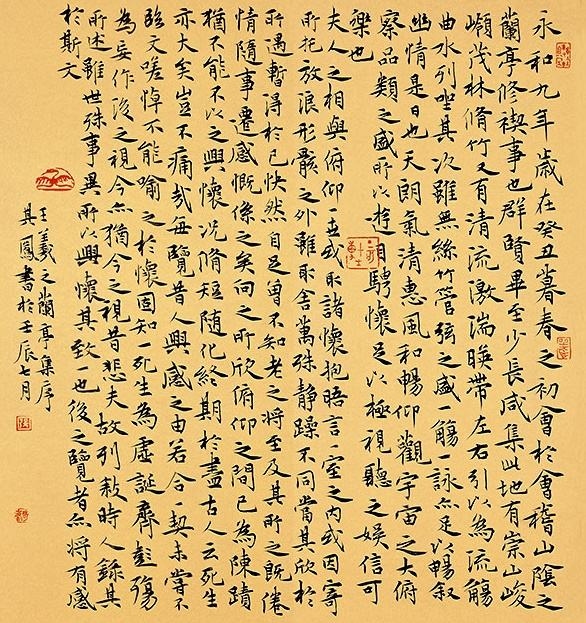 永和九年歲在癸丑暮春之初會於會稽山陰之
蘭亭修禊事也群賢畢至少長咸集此地有崇山峻
嶺茂林脩竹又有清流激湍暎帶左右引以為流觴
曲水列坐其次雖無絲竹管弦之盛一觴一詠亦足以暢叙
幽情是日也天朗氣清惠風和暢仰觀宇宙之大俯
察品類之盛所以遊目騁懷足以極視聽之娛信可
樂也
夫人之相與俯仰一世或取諸懷抱晤言一室之內或因寄
所托放浪形骸之外雖取舍萬殊靜躁不同當其欣於
所遇暫得於己快然自足曾不知老之將至及其所之既倦
情隨事遷感慨係之矣向之所欣俯仰之間已為陳蹟
猶不能不以之興懷況脩短随化終期於盡古人云死生
亦大矣豈不痛哉每覽昔人興感之由若合一契未嘗不
臨文嗟悼不能喻之於懷固知一死生為虛誕齊彭殤
為妄作後之視今亦猶今之視昔悲夫故列敘時人錄其
所述雖世殊事異所以興懷其致一也後之覽者亦將有感
於斯文
王羲之蘭亭集序
其鳳書於壬辰七月